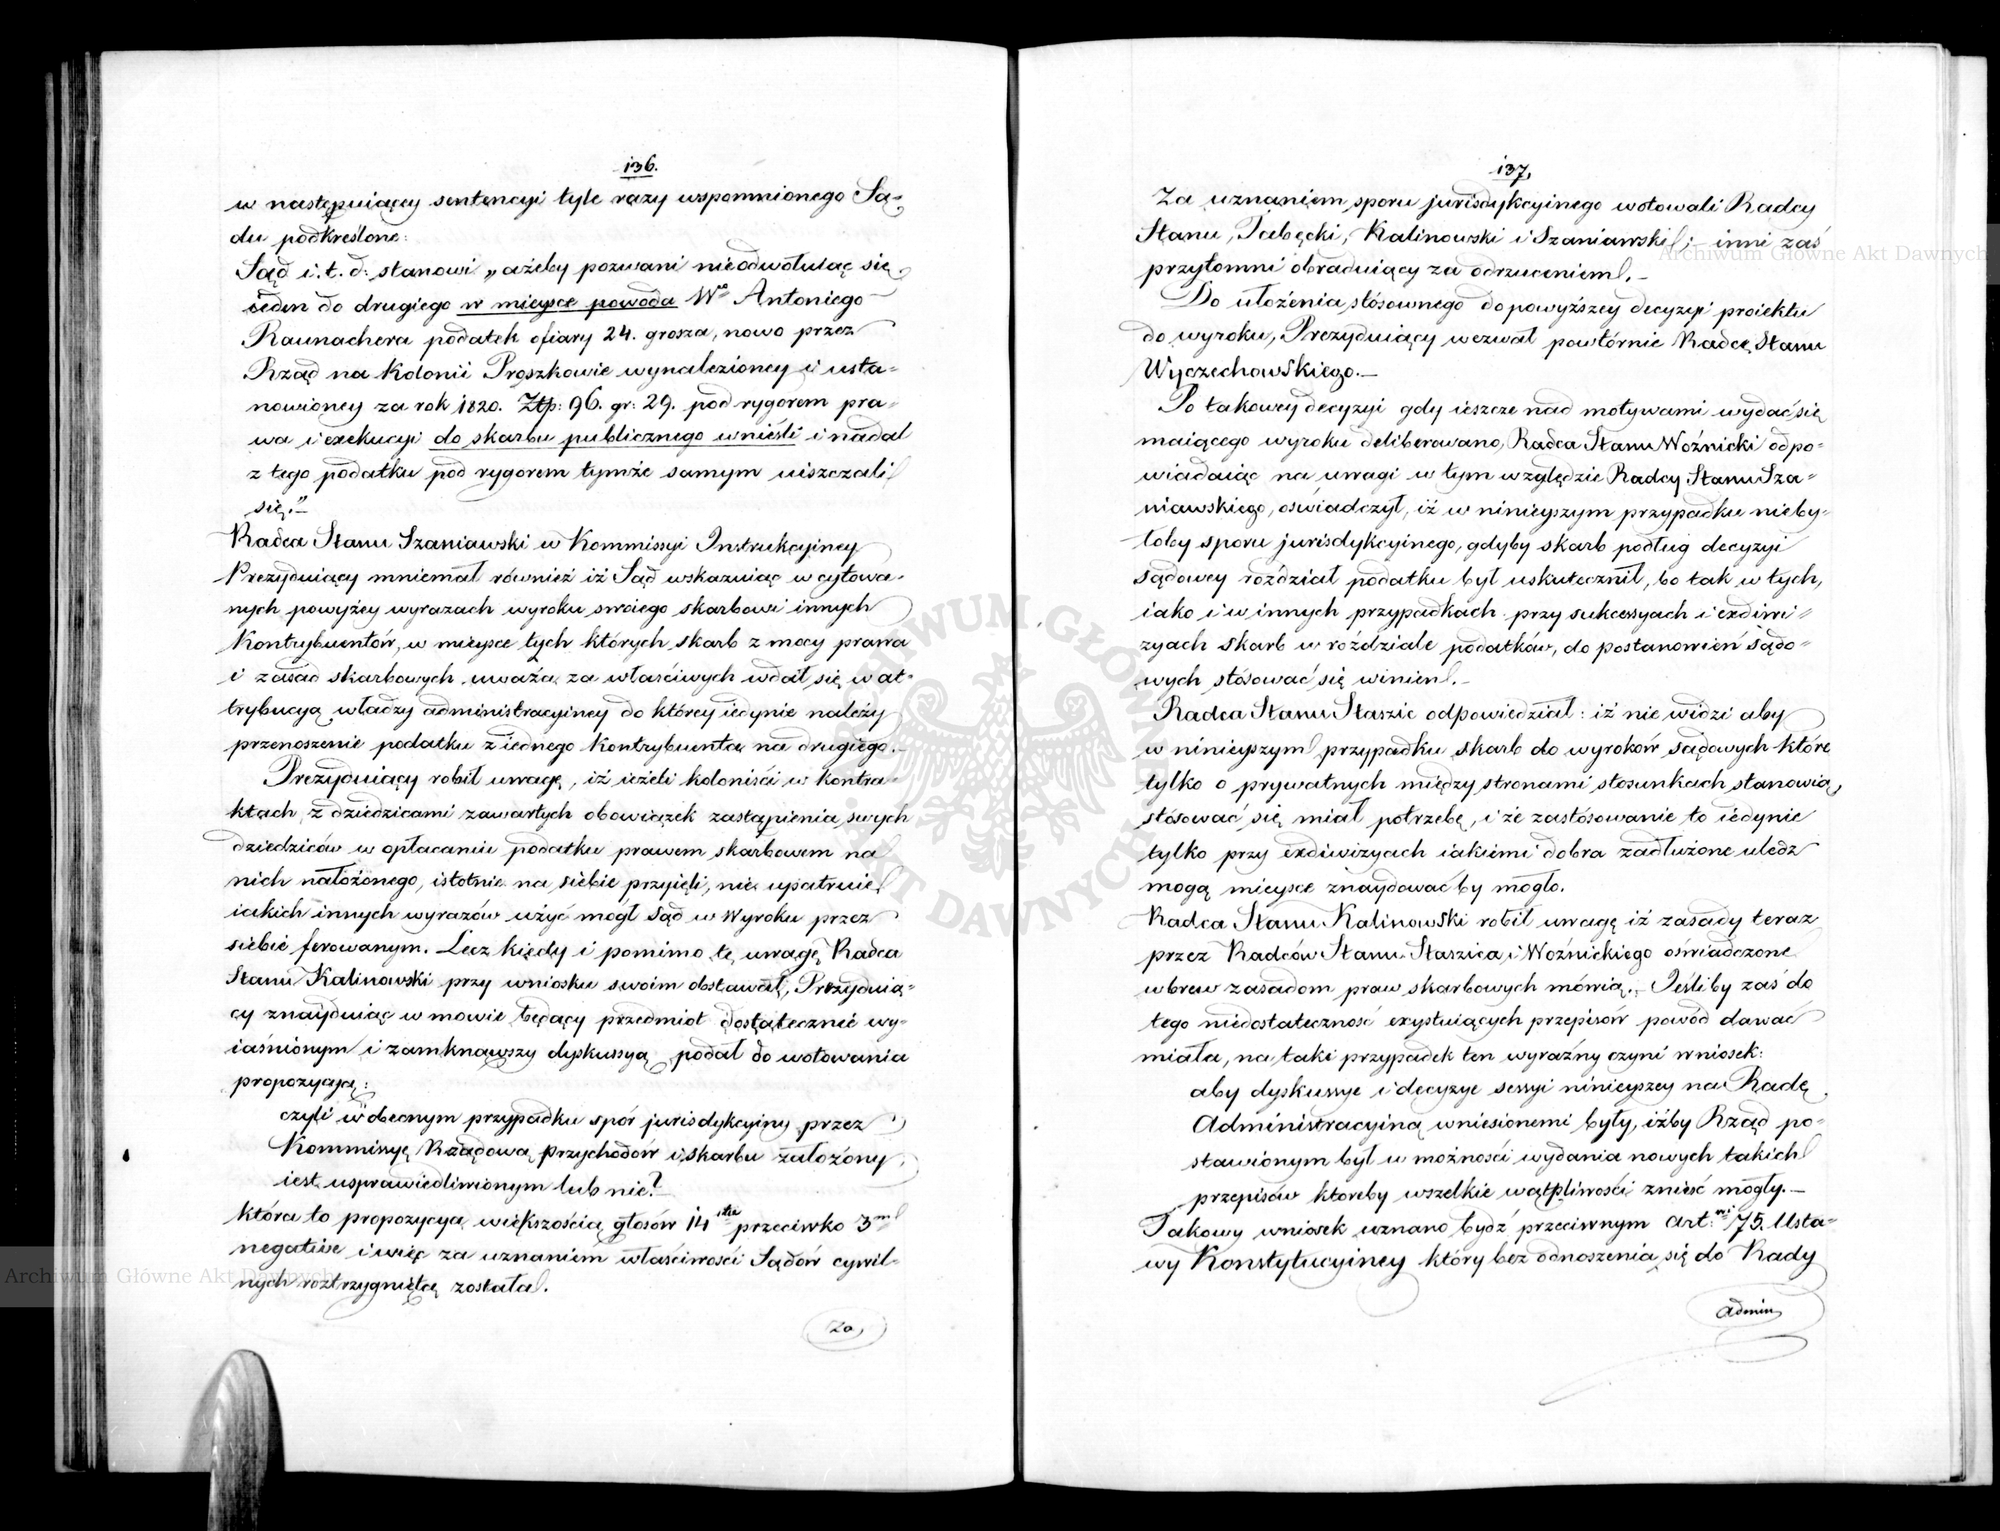 136.
w następuiącey sentencyi tyle razy wspomnionego Są-
du podkreślone:
Sąd i. t. d: stanowi „ażeby pozwani nieodwołuiąc się
ieden do drugiego w mieysce powoda Wo Antoniego
Raunachera podatek ofiary 24. grosza, nowo przez
Rząd na Kolonii Proszkowie wynalezioney i usta-
nowioney za rok 1820. Złp: 96. gr: 29. pod rygorem pra-
wa i exekucyi do skarbu publicznego wnieśli i nadal
z tego podatku pod rygorem tymże samym uiszczali
się."—
Radca Stanu Szaniawski w Kommissyi Instrukcyiney
Prezyduiący mniemał również iż Sąd wskazuiąc w cytowa-
nych powyżey wyrazach wyroku swoiego skarbowi innych
Kontrybuentów, w mieysce tych których skarb z mocy prawa
i zasad skarbowych uważa za właściwych wdał się w at-
trybucyą władzy administracyiney do którey iedynie należy
przenoszenie podatku z iednego kontrybuenta na drugiego.—
Prezyduiący robił uwagę, iż ieżeli koloniści w kontra-
ktach z dziedzicami zawartych obowiązek zastąpienia swych
dziedziców w opłacaniu podatku prawem skarbowem na
nich nałożonego, istotnie na siebie przyięli, nie upatruie
iakich innych wyrazów użyć mógł Sąd w Wyroku przez
siebie ferowanym. Lecz kiedy i pomimo tę uwagę Radca
Stanu Kalinowski przy wniosku swoim obstawał, Prezyduią-
cy znayduiąc w mowie będący przedmiot dostatecznie wy-
iaśnionym i zamknąwszy dyskussyą podał do wotowania
propozycyą:
czyli w obecnym przypadku spór jurisdykcyiny przez
Kommissyę Rządową przychodów i skarbu założony
iest usprawiedliwionym lub nie?—
która to propozycya większością głosów 14stu przeciwko 3m
negative i więc za uznaniem właściwości Sądów cywil-
nych roztrzygniętą została.
Za
137.
Za uznaniem sporu jurisdykcyinego wotowali Radcy
Stanu, Kalinowski i Szaniawski; — inni zaś
przytomni obraduiący za odrzuceniem.—
Do ułożenia stósownego do powyższey decyzyi proiektu
do wyroku, Prezyduiący wezwał powtórnie Radcę Stanu
Wyczechowskiego.—
Po takowey decyzyi gdy ieszcze nad motywami wydać się
maiącego wyroku deliberowano, Radca Stanu Woźnicki odpo-
wiadaiąc na uwagi w tym względzie Radcy Stanu Sza-
niawskiego, oświadczył, iż w ninieyszym przypadku nieby-
łoby sporu jurisdykcyinego, gdyby skarb podług decyzyi
sądowey rozdział podatku był uskutecznił, bo tak w tych,
iako i w innych przypadkach przy sukcessyach i exdiwi-
zyach skarb w rozdziale podatków, do postanowień sądo-
wych stósować się winien.—
Radca Stanu Staszic odpowiedział: iż nie widzi aby
w ninieyszym przypadku skarb do wyroków sądowych które
tylko o prywatnych między stronami stosunkach stanowią,
stósować się miał potrzebę, i że zastósowanie to iedynie
tylko przy exdiwizyach iakiemi dobra zadłużone uledz
mogą mieysce znaydować by mogło.
Radca Stanu Kalinowski robił uwagę iż zasady teraz
przez Radców Stanu Staszica i Woźnickiego oświadczone
wbrew zasadom praw skarbowych mówią.— Jeśliby zaś do
tego niedostateczność exystuiących przepisów powód dawać
miała, na taki przypadek ten wyraźny czyni wniosek:
aby dyskussye i decyzye sessyi ninieyszey na Radę
Administracyiną wniesionemi były, iżby Rząd po-
stawionym był w możności wydania nowych takich
przepisów któreby wszelkie wątpliwości znieść mogły.—
Takowy wniosek uznano bydź przeciwnym art:wi 75. Usta-
wy Konstytucyiney który bez odnoszenia się do Rady
Admin
Archiwum Główne Akt Dawnych
Archiwum Główne Akt Dawnych
ARCHIWUM GŁÓWNE AKT DAWNYCH